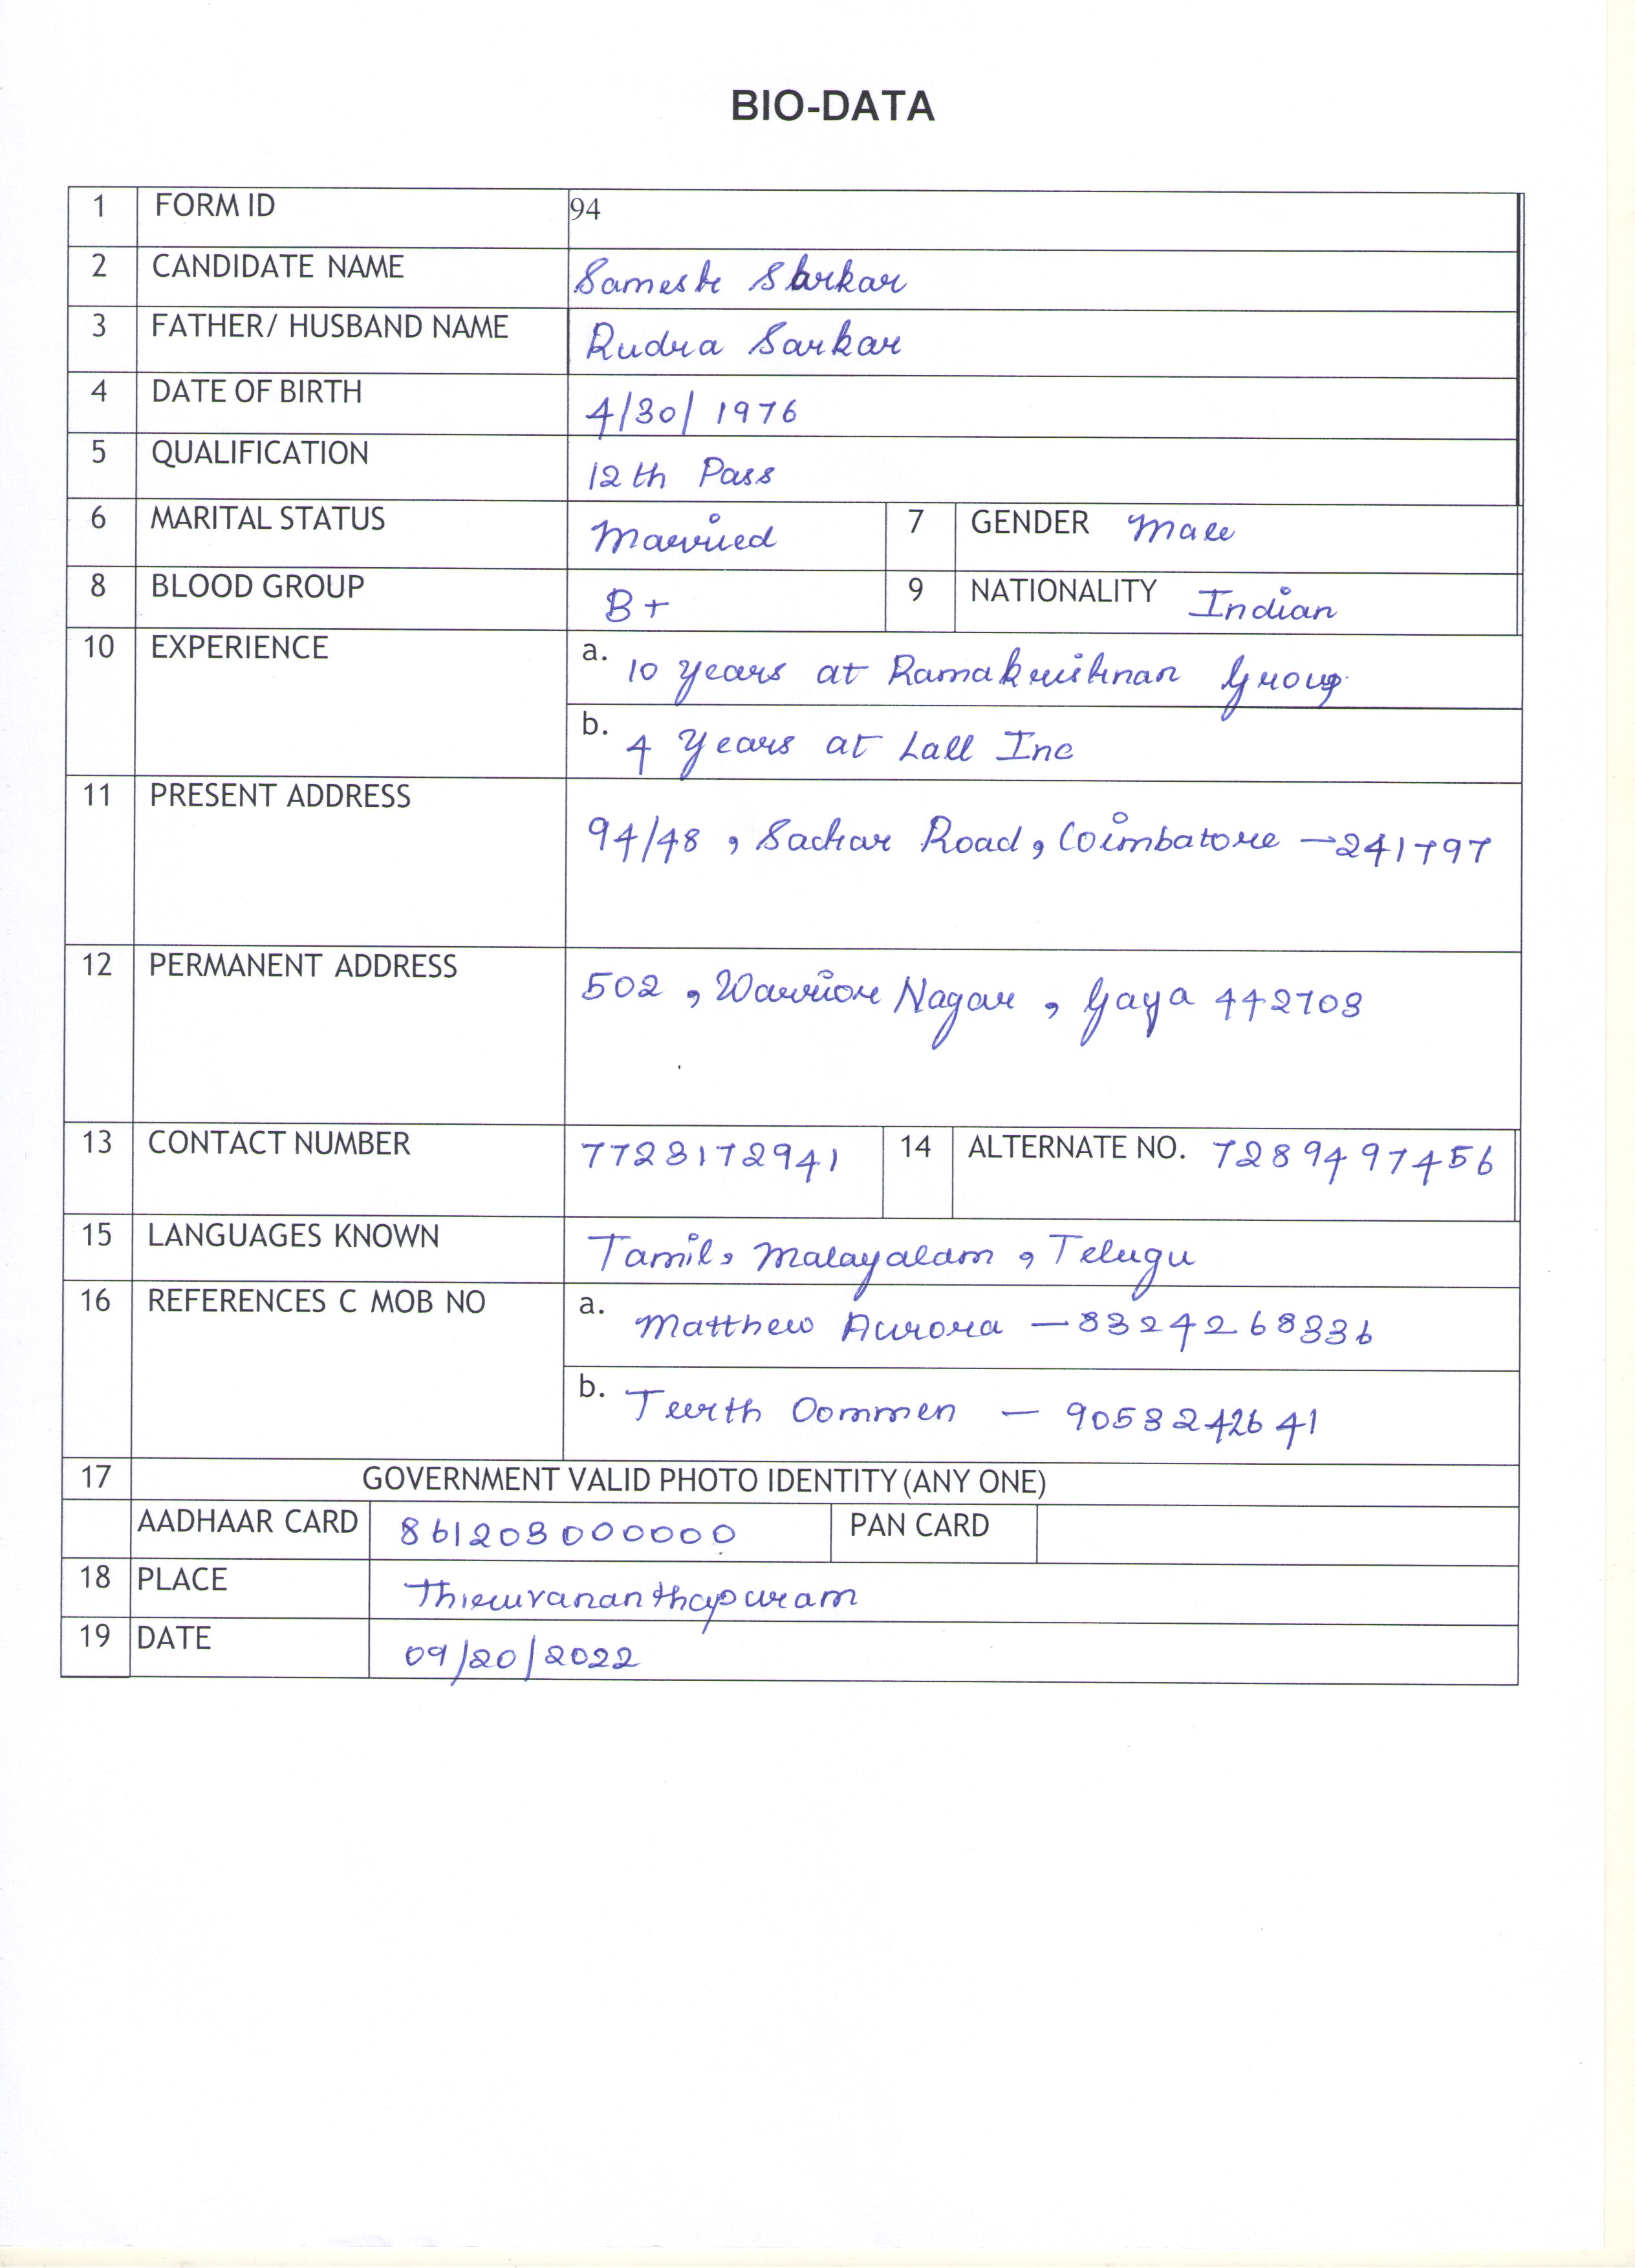 BIO-DATA
1 FORM ID 94
2 CANDIDATE NAME Samesh Sarkar
3 FATHER/ HUSBAND NAME Rudra Sarkar
4 DATE OF BIRTH 4/30/1976
5 QUALIFICATION 12th Pass
6 MARITAL STATUS Married 7 GENDER Male
8 BLOOD GROUP B+ 9 NATIONALITY Indian
10 EXPERIENCE a. 10 years at Ramakrishnan Group
b. 4 Years at Lall Inc
11 PRESENT ADDRESS 94/48, Sachar Road, Coimbatore - 241797
12 PERMANENT ADDRESS 502, Warrior Nagar, Gaya 442703
13 CONTACT NUMBER 7723172941 14 ALTERNATE NO. 7289497456
15 LANGUAGES KNOWN Tamil, Malayalam, Telugu
16 REFERENCES C MOB NO a. Matthew Aurora - 8324268336
b. Teerth Oommen - 9053242641
17 GOVERNMENT VALID PHOTO IDENTITY (ANY ONE)
AADHAAR CARD 861203000000 PAN CARD
18 PLACE Thiruvananthapuram
19 DATE 09/20/2022